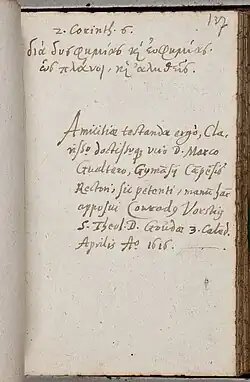 127
2. Corinth. 6.
διὰ δυσφημίας κὶ εὐφημίας.
ὡς πλάνοι, κὶ ἀληθεῖς.
Amicitiæ testandæ ergò, Cla-
rissº doctissimoq; viro D. Marco
Gualtero, Gymnasij Campēsis
Rectori, sic petenti, manū hāc
apposui Conradq Vorstiq
S. Theol. D. Goudæ 3. Calend.
Aprilis Aº 1616.